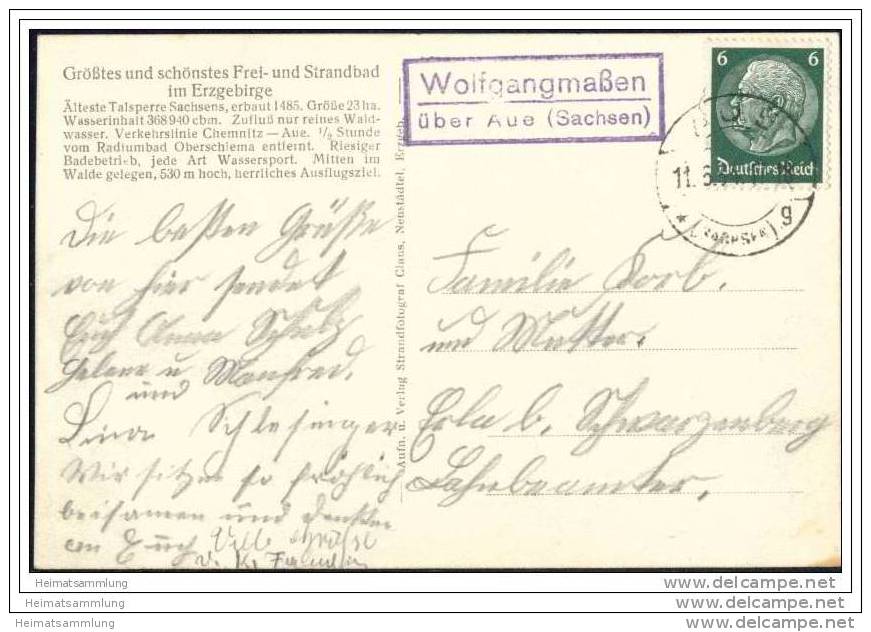 Größtes und schönstes Frei- und Strandbad
im Erzgebirge
Älteste Talsperre Sachsens, erbaut 1485. Größe 23 ha.
Wasserinhalt 368 940 cbm. Zufluß nur reines Wald-
wasser. Verkehrslinie Chemnitz — Aue. Stunde
vom Radiumbad Oberschlema entfernt. Riesiger
Badebetrieb, jede Art Wassersport. Mitten im
Walde gelegen, 530 m hoch, herrliches Ausflugsziel.
Die besten Grüße
von hier sendet
Euch Anna Schulz
Helene u Manfred.
und
Lina Schlesinger
Wir sitzen so fröhlich
beisamen und denken
an Euch
Aufn. u. Verlag Strandfotograf Claus, Neustädtel, Erzgeb.
Wolfgangmaßen
über Aue (Sachsen)
6 6
Deutsches Reich
AUE
11. 6.
(SACHSEN)
g
Familie Korb.
und Mutter.
Erla b. Schwarzenberg
Bahnbeamter.
Heimatsammlung
Heimatsammlung
Heimatsammlung
delcampe.net
delcampe.net
delcampe.net